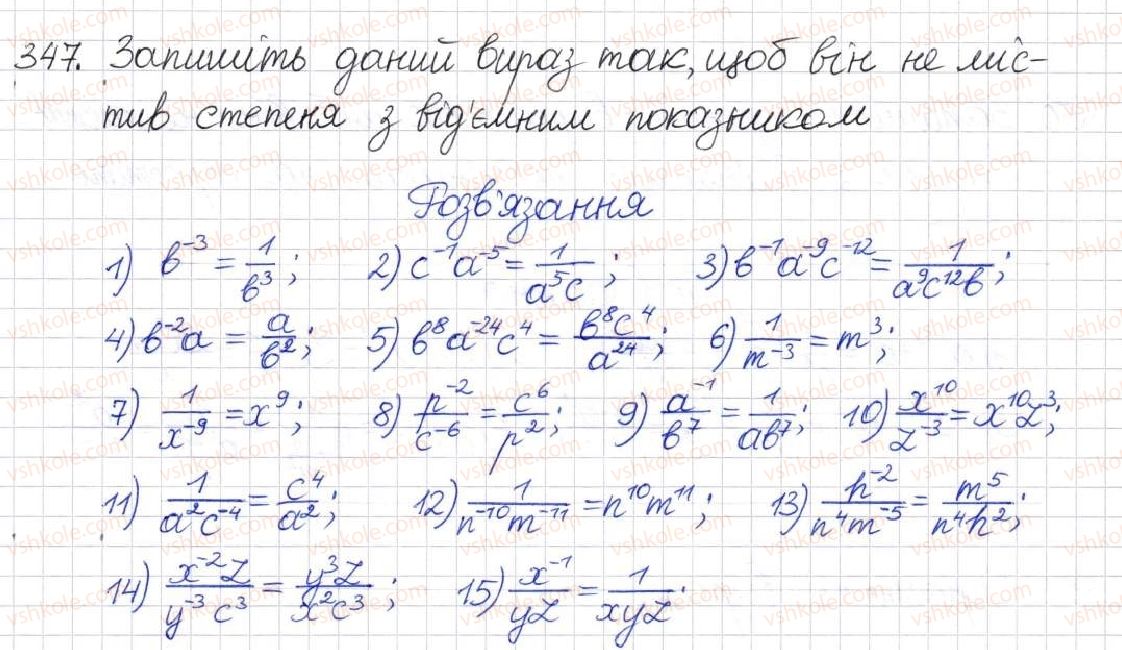 347. Запишіть даний вираз так, щоб він не міс-
тив степеня з від'ємним показником
Розв'язання
1) b⁻³ = 1/b³; 2) c⁻¹a⁻⁵ = 1/(a⁵c); 3) b⁻¹a⁻⁹c⁻¹² = 1/(a⁹c¹²b);
4) b⁻²a = a/b²; 5) b⁸a⁻²⁴c⁴ = b⁸c⁴/a²⁴; 6) 1/m⁻³ = m³;
7) 1/x⁻⁹ = x⁹; 8) p⁻²/c⁻⁶ = c⁶/p²; 9) a⁻¹/b⁷ = 1/(ab⁷); 10) x¹⁰/z⁻³ = x¹⁰z³;
11) 1/(a²c⁻⁴) = c⁴/a²; 12) 1/(n⁻¹⁰m⁻¹¹) = n¹⁰m¹¹; 13) h⁻²/(n⁴m⁻⁵) = m⁵/(n⁴h²);
14) x⁻²z/(y⁻³c³) = y³z/(x²c³); 15) x⁻¹/(yz) = 1/(xyz).